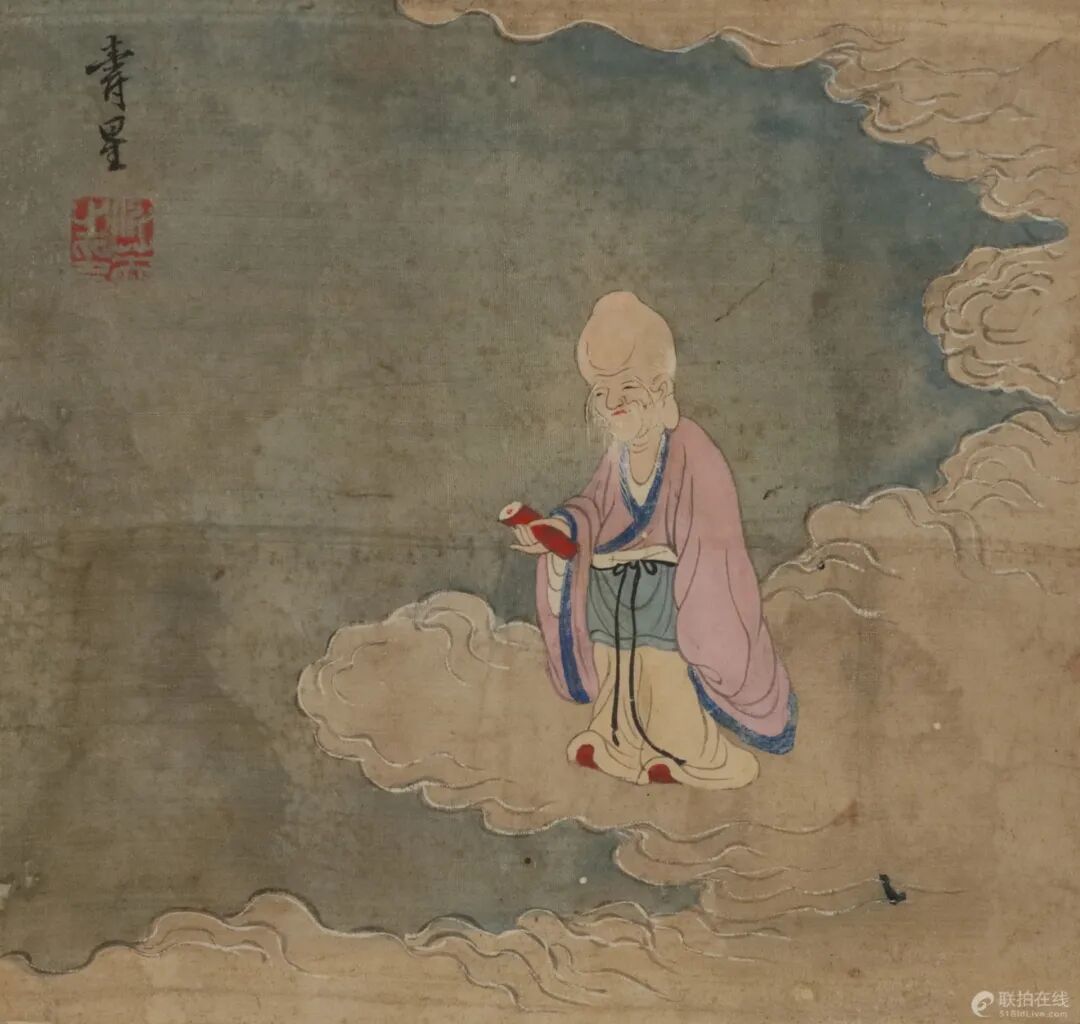 寿星
联拍在线
518ldLive.com